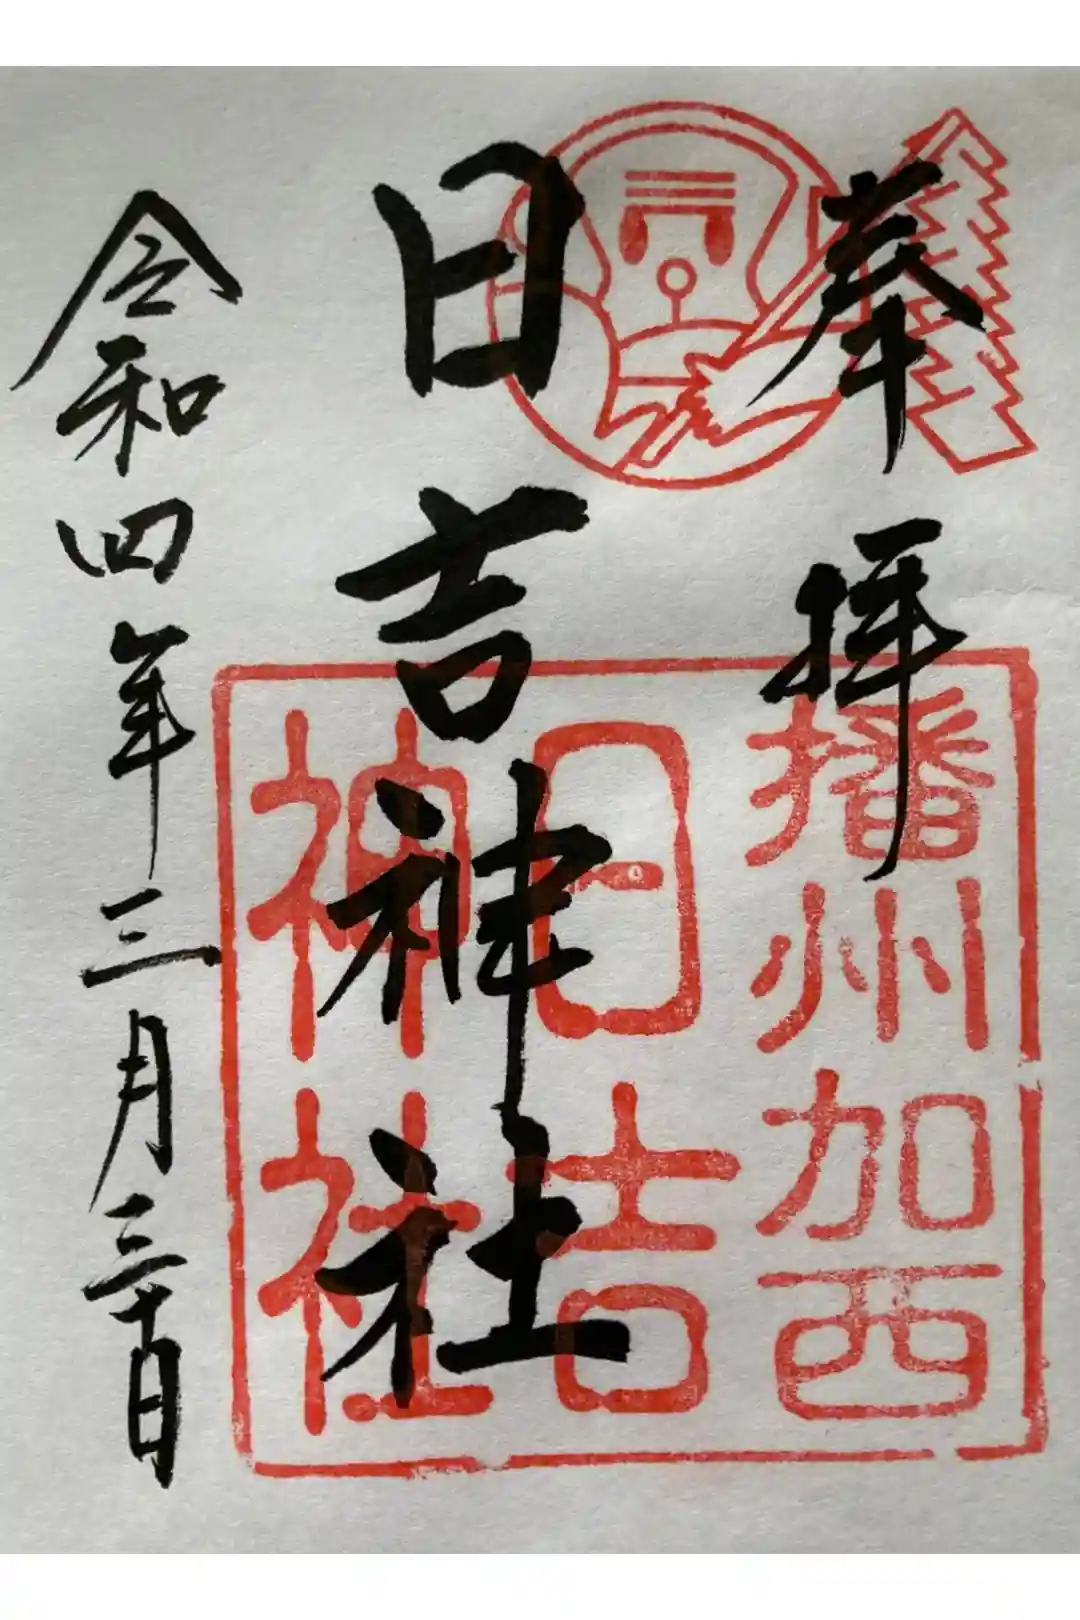 奉拝
播州加西
日吉神社
日吉
神社
令和四年三月三十日